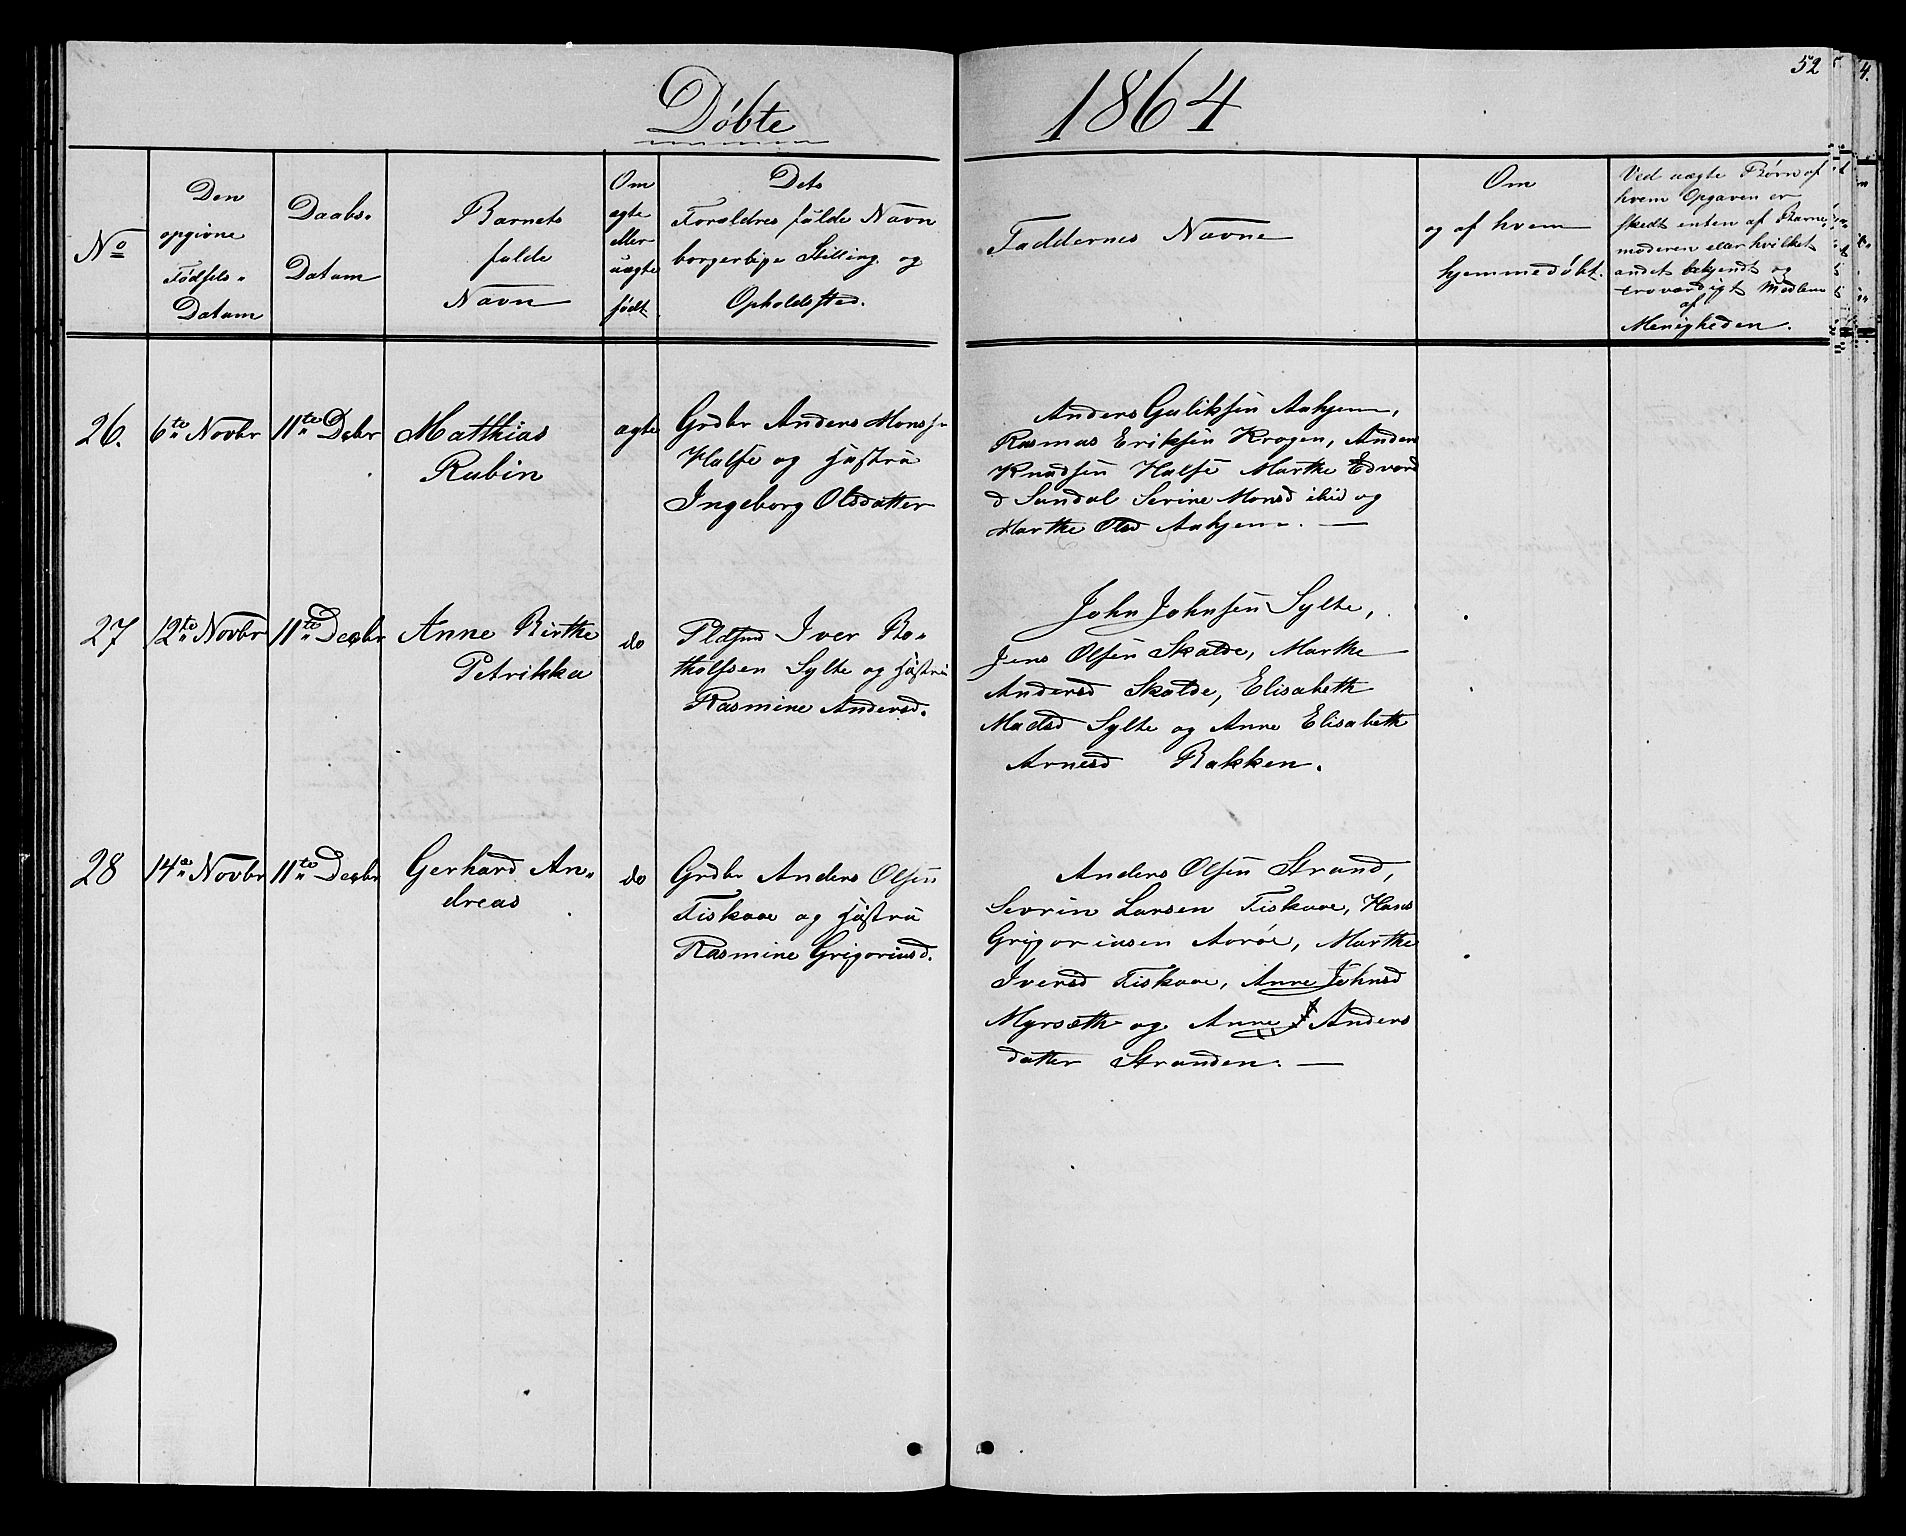 Døbte
1864
52
4.
No
Den
opgivne
Fødsels-
Datum
Daabs-
Datum
Barnets
fulde
Navn
Om
ægte
eller
uægte
født
Dets
Forældres fulde Navn
borgerlige Stilling og
Opholdssted.
Faddernes Navne
Om
og af hvem
hjemmedøbt.
Ved uægte Børn af
hvem Opgaven er
skedt enten af Barne
moderen eller hvilket
andet bekjendt og
troværdigt Medlem
af
Menigheden.
26.
6te Novbr
11te Decbr
Matthias
Rubin
ægte
Grdbr Anders Monss
Halse og Hustru
Ingeborg Olsdatter
Anders Guliksen Aakjem,
Rasmus Eriksen Krogen, Anders
Knudsen Halse Marthe Edvard
d Sundal Serine Monsd ibid og
Marthe Olsd Aakjem. —
27
12te Novbr
11te Decbr
Anne Birthe
Petrikka
do
Pladsmd Iver Bo-
tholfsen Sylte og Hustru
Rasmine Andersd.
John Johnsen Sylte,
Jens Olsen Skalde, Marthe
Andersd Skalde, Elisabeth
Madsd Sylte og Anne Elisabeth
Arnesd Bakken.
28
14de Novbr
11te Decbr
Gerhard An-
dreas
do
Grdbr Anders Olsen
Fiskaae og Hustru
Rasmine Grigoriusd.
Anders Olsen Strand,
Sevrin Larsen Fiskaae, Hans
Grigoriusen Aarøe, Marthe
Iversd Fiskaae, Anne Johnsd
Myrsæth og Anne Anders
datter Stranden. —